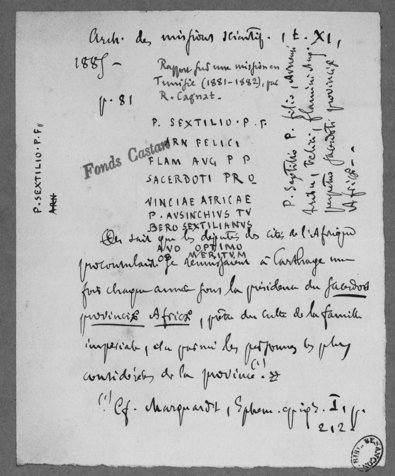 Arch. des missions scientif. , t. XI,
1885 –
Rapport sur une mission en
Tunisie (1881-1882), par
R. Cagnat.
p. 81
P. SEXTILIO . P . F
ARN FELICI
FLAM AVG P P
SACERDOTI PRO
VINCIAE AFRICAE
P . AVSINCHIVS TV
BERO SEXTILIANVS
AVO OPTIMO
OB MERITVM
P. SEXTILIO . P . F
ARN
P. Sextilio P. filio, Arnensi
tribu, Felici, flamini Aug.
perpetuo sacerdoti provinciæ
Africæ –
Fonds Castan
On sait que les députés des cités de l'Afrique
proconsulaire se réunissaient à Carthage une
fois chaque année sous la présidence du sacerdos
provinciæ Africæ, prêtre du culte de la famille
impériale, élu parmi les personnes les plus
considérées de la province. (1)
(1) Cf. Marquardt, Ephem. epigr. I, p.
212.